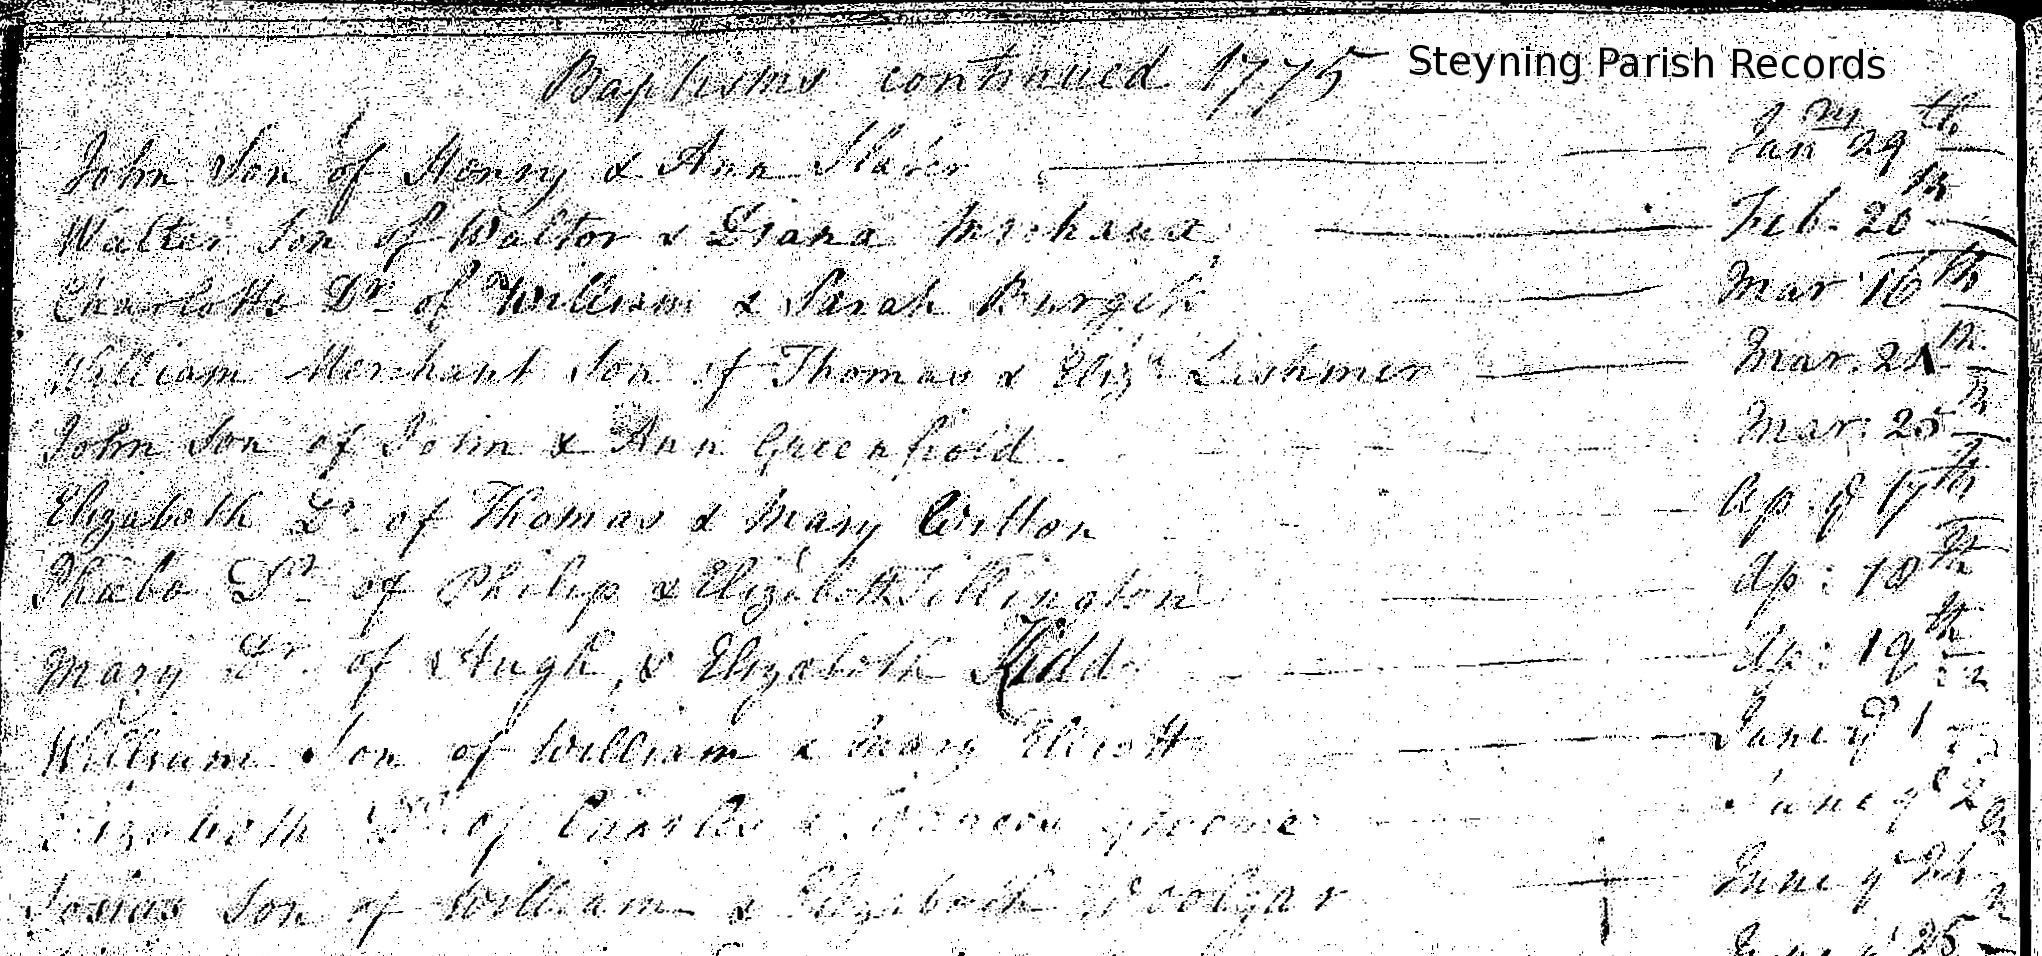 Baptisms continued 1775 Steyning Parish Records
John Son of Henry & Ann Slater Jan ry 29th
Walter Son of Walter & Diana Feb. 20th
Charlotte Dr of William & Sarah Burgess Mar 16th
William Merchant Son of Thomas & Eliz Lishmer Mar. 24th
John Son of John & Ann Greenfield Mar: 25th
Elizabeth Dr. of Thomas & Mary Willson Ap. ye 17th
Phœbe Dr of Philip & Elizabeth Tillington Ap: 18th
Mary Dr. of Hugh & Elizabeth Kidd Ap: 19th
William Son of William & Mary Eliott June ye 1
Elizabeth Dr of Charles & Groome June ye 2
Josias Son of William & Elizabeth Woolgar June ye
June ye 25